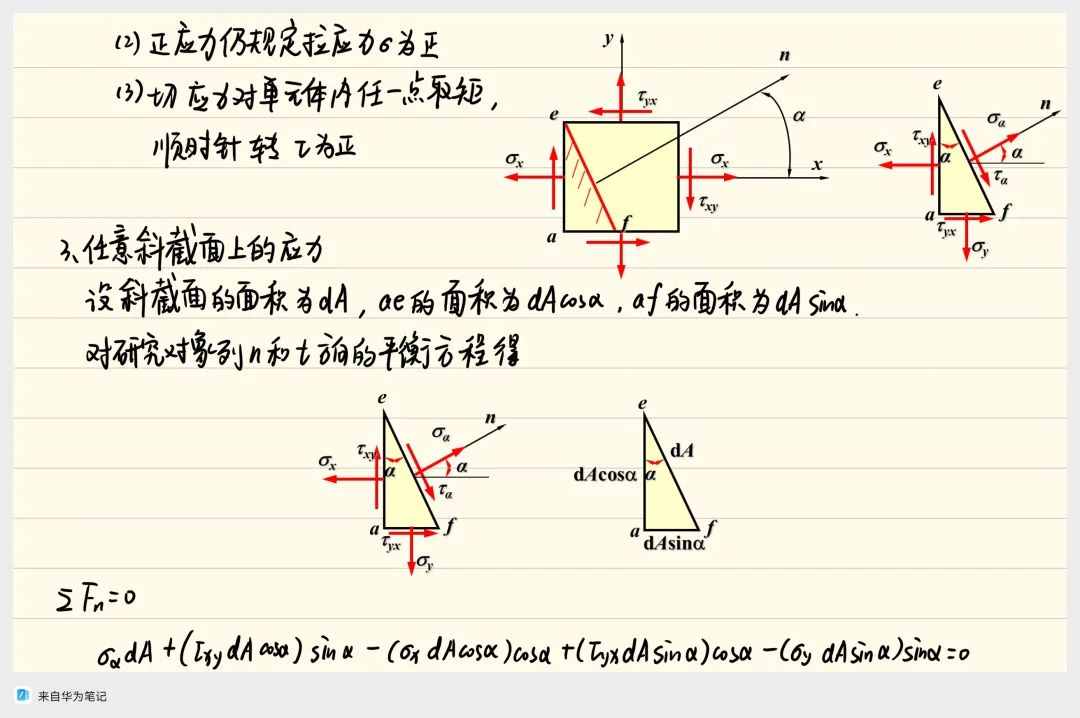 (2) 正应力仍规定拉应力σ为正
(3) 切应力对单元体内任一点取矩，
顺时针转 τ为正
y
n
τyx
e
α
σx
σx
x
τxy
a
f
e
n
σα
τxy
σx
α
α
τα
a
f
τyx
σy
3、任意斜截面上的应力
设斜截面的面积为dA，ae的面积为dAcosα，af的面积为dAsinα.
对研究对象列n和t方向的平衡方程得
e
n
σα
τxy
σx
α
α
τα
a
f
τyx
σy
e
dA
dAcosα
α
a
f
dAsinα
ΣFn=0
σαdA+(τxydAcosα)sinα-(σxdAcosα)cosα+(τyxdAsinα)cosα-(σydAsinα)sinα=0
来自华为笔记